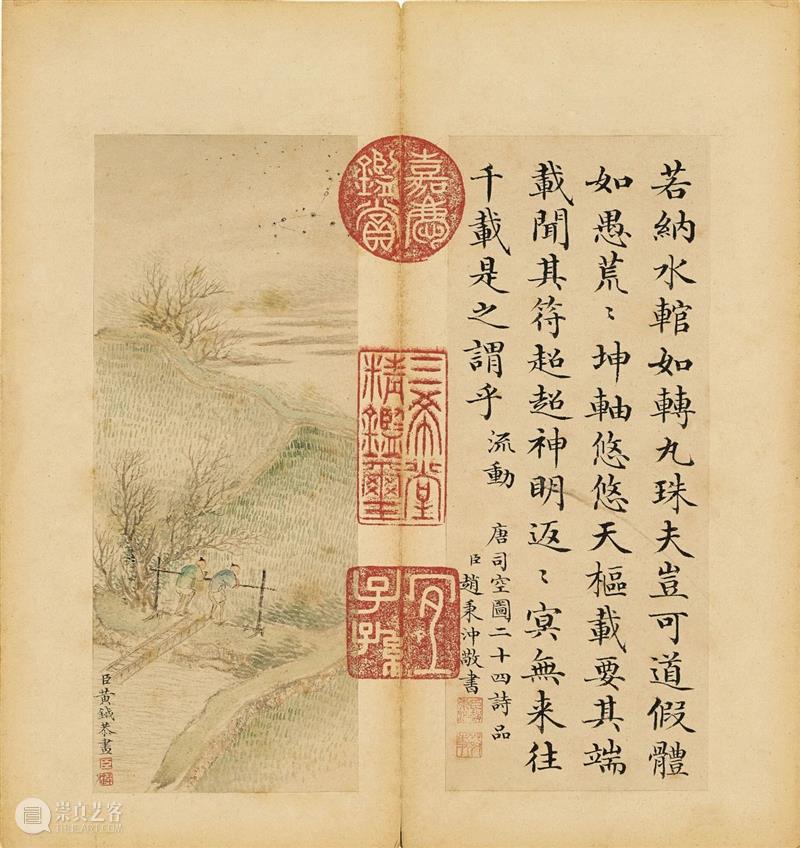 若納水輨如轉丸珠夫豈可道假體
如愚荒〻坤軸悠悠天樞載要其端
載聞其符超超神明返〻冥無来往
千載是之謂乎
流動
唐司空圖二十四詩品
臣趙秉沖敬書
嘉慶鑑賞
三希堂精鑑璽
宜子孫
臣黃鉞恭畫
崇真艺客